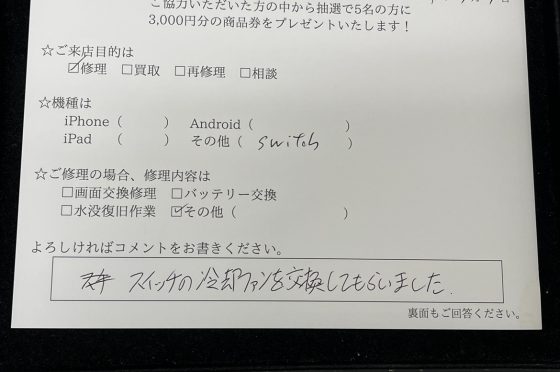 ご協力いただいた方の中から抽選で5名の方に
3,000円分の商品券をプレゼントいたします!
☆ご来店目的は
☑修理 □買取 □再修理 □相談
☆機種は
iPhone( ) Android( )
iPad ( ) その他( switch )
☆ご修理の場合、修理内容は
□画面交換修理 □バッテリー交換
□水没復旧作業 ☑その他( )
よろしければコメントをお書きください。
スイッチの冷却ファンを交換してもらいました.
裏面もご回答ください。